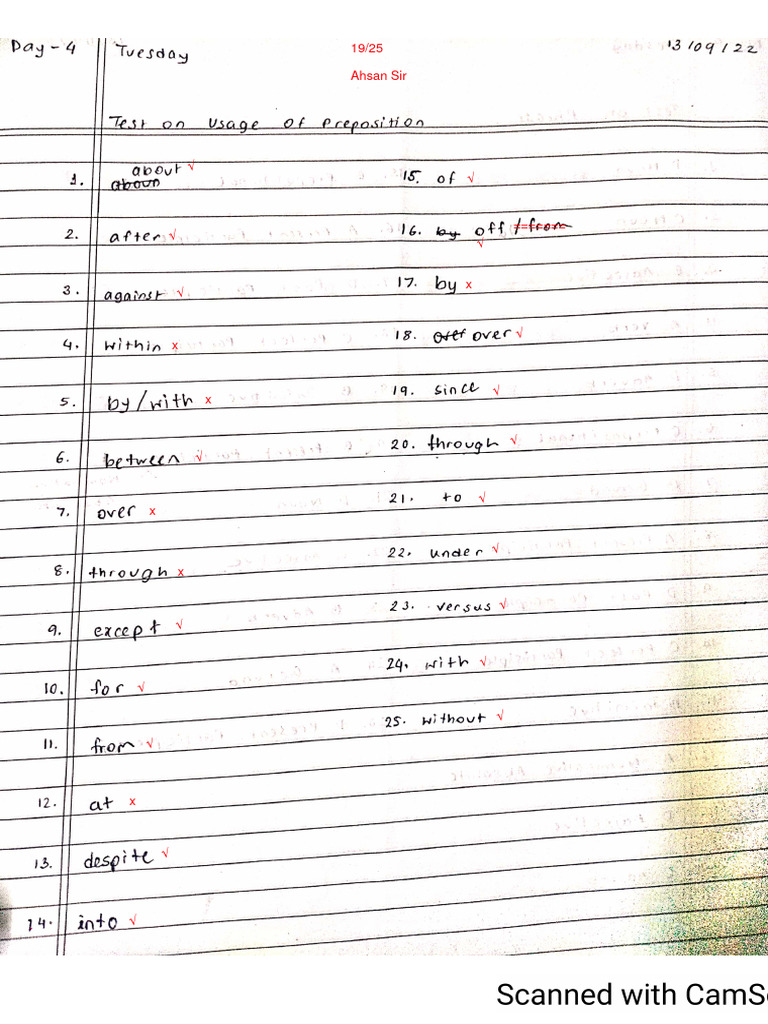 Day - 4 Tuesday 19/25 13/09/22
Ahsan Sir
Test on Usage of Preposition
1. about √ 15. of √
2. after √ 16. by off / from √
3. against √ 17. by x
4. within x 18. over √
5. by/with x 19. since √
6. between √ 20. through √
7. over x 21. to √
8. through x 22. under √
9. except √ 23. versus √
10. for √ 24. with √
11. from √ 25. without √
12. at x
13. despite √
14. into √
Scanned with CamSc